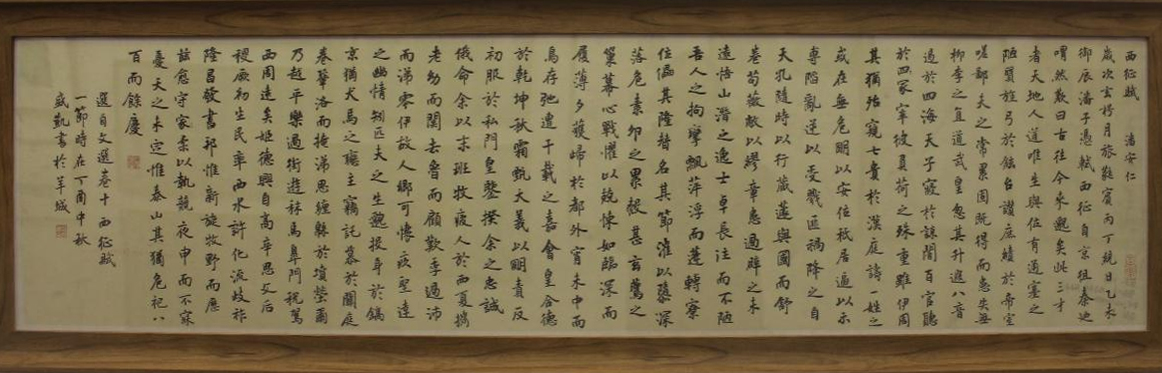 西征賦 潘安仁
歲次玄枵月旅蕤賓丙丁統日乙未
御辰潘子憑軾西征自京徂秦迺
喟然歎曰古往今來邈矣此三才
者天地人道唯生與位有通塞之
陋旌弓於鉉台讚庶績於帝室
嗟鄙夫之常累固既得而患失無
柳季之直道武皇忽其升遐八音
遏於四海天子寢於諒闇百官聽
於四冢宰彼負荷之殊重雖伊周
其猶殆窺七貴於漢庭譸一姓之
或在無危明以安位祗居逼以示
專陷亂逆以受戮匪禍降之自
天孔隨時以行藏蘧與國而舒
卷苟蔽以繆章患過辟之未
遠悟山潛之逸士卓長往而不陋
吾人之拘攣飄萍浮而蓬轉寮
位儡其隆替名其節漼以隳深
落危素卵之累殼甚玄鷰之
巢幕心戰懼以兢悚如臨深而
履薄夕獲歸於都外宵未中而
鳥存弛遭千載之嘉會皇合德
於乾坤秋霜甄大義以明責反
初服於私門皇鑒揆余之忠誠
俄命余以末班牧疲人於西夏攜
老幼而關去魯而顧歎季過沛
而涕零伊故人鄉可懷疚聖達
之幽情矧匹夫之生魏投身於鎬
京猶犬馬之戀主竊託慕於闕庭
眷鞏洛而掩涕思纏緜於墳塋爾
乃越平樂過街遊秣馬皋門稅駕
西周遠矣姬德興自高辛思文后
稷厥初生民率西水滸化流岐祚
隆昌發舊邦惟新旋牧野而歷
茲愈守家柔以執競夜申而不寐
憂天之未定惟泰山其猶危祀八
百而餘慶
選自文選卷十西征賦
一節時在丁酉中秋
盛凱書於羊城